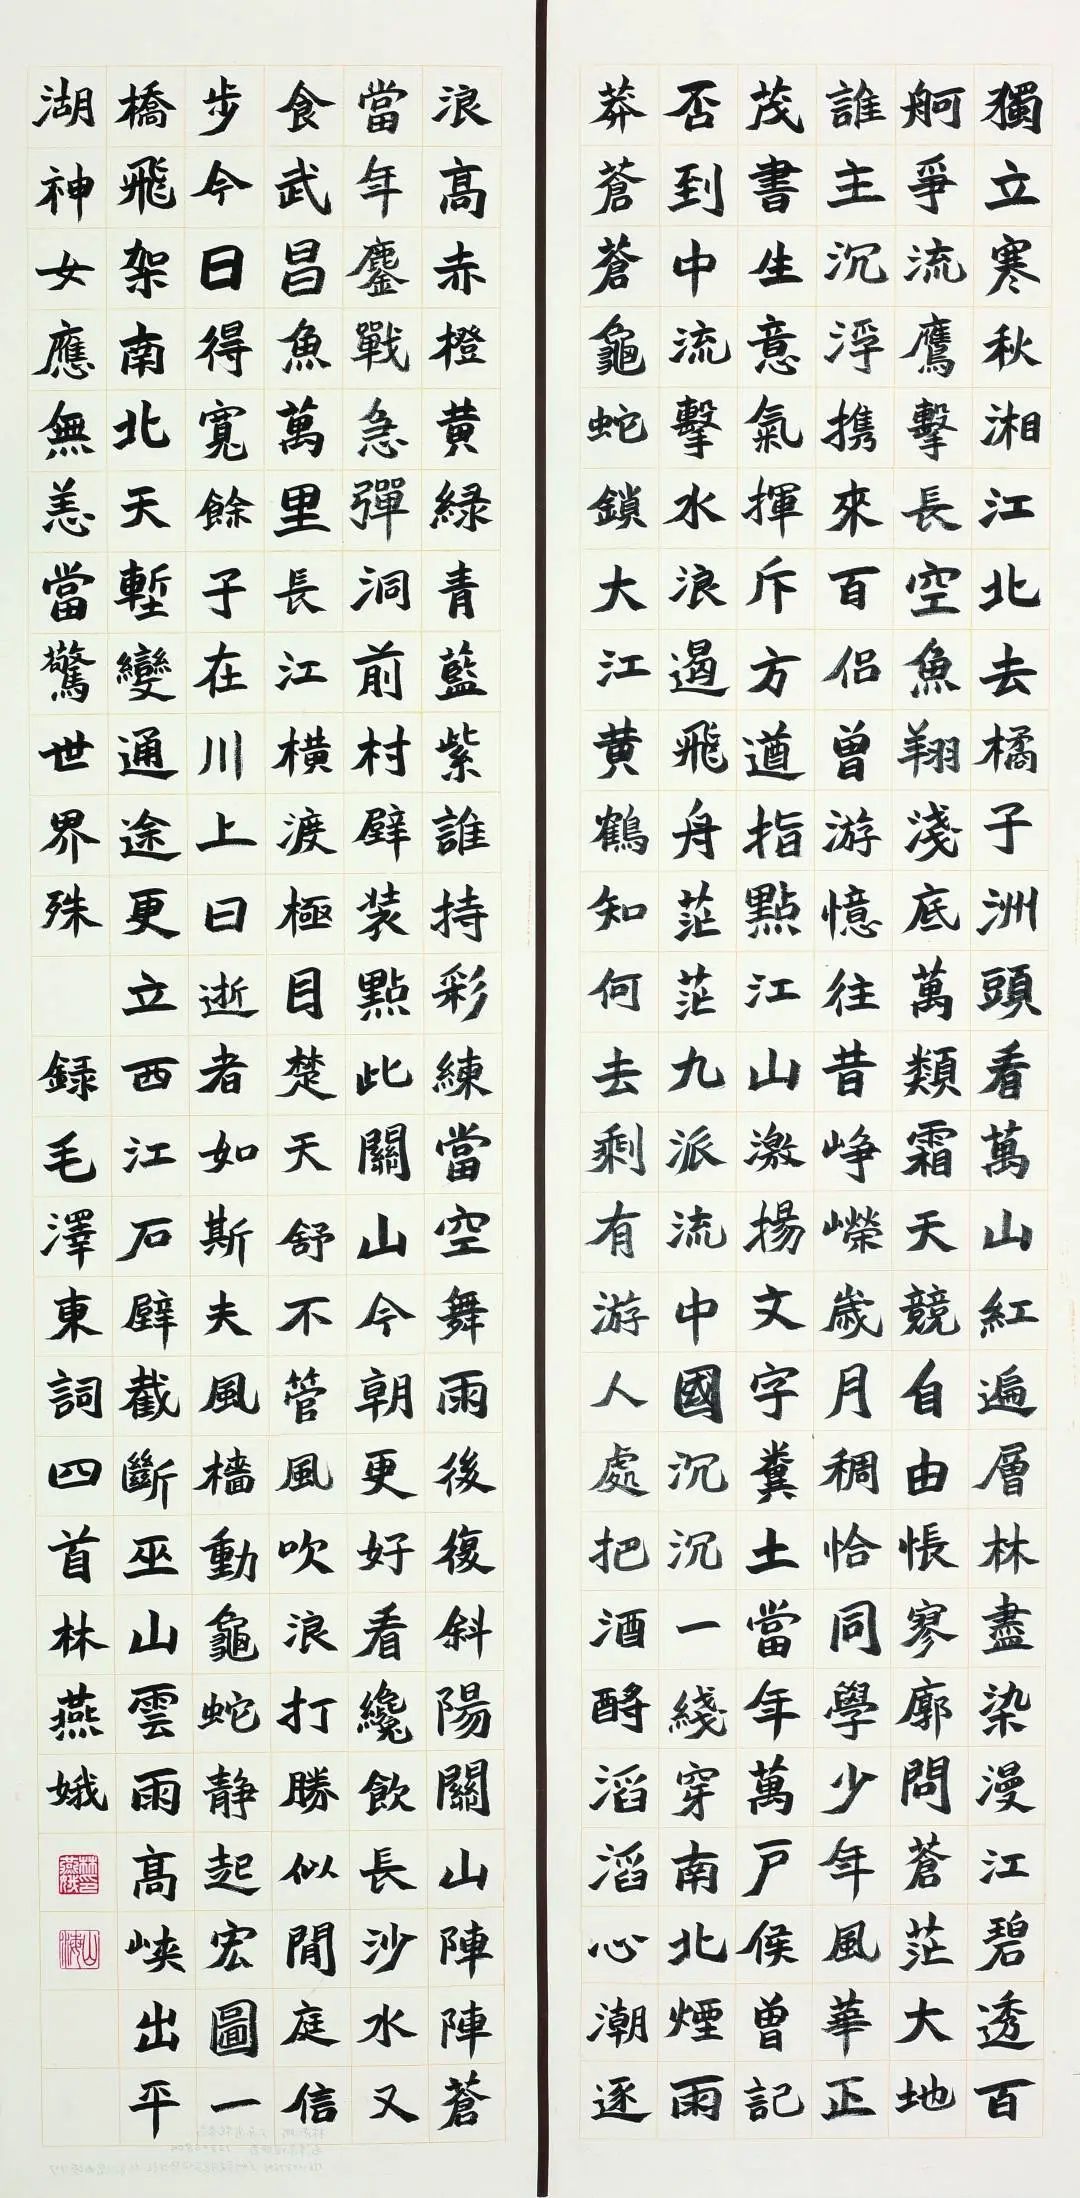 獨立寒秋湘江北去橘子洲頭看萬山紅遍層林盡染漫江碧透百
舸爭流鷹擊長空魚翔淺底萬類霜天競自由悵寥廓問蒼茫大地
誰主沉浮携來百侣曾游憶往昔崢嶸歲月稠恰同學少年風華正
茂書生意氣揮斥方遒指點江山激揚文字糞土當年萬戶侯曾記
否到中流擊水浪遏飛舟茫茫九派流中國沉沉一綫穿南北煙雨
莽蒼蒼龜蛇鎖大江黄鶴知何去剩有游人處把酒酹滔滔心潮逐
浪高赤橙黄緑青藍紫誰持彩練當空舞雨後復斜陽關山陣陣蒼
當年鏖戰急彈洞前村壁装點此關山今朝更好看纔飲長沙水又
食武昌魚萬里長江橫渡極目楚天舒不管風吹浪打勝似閒庭信
步今日得寬餘子在川上曰逝者如斯夫風檣動龜蛇静起宏圖一
橋飛架南北天塹變通途更立西江石壁截斷巫山雲雨高峽出平
湖神女應無恙當驚世界殊 録毛澤東詞四首林燕娥
林燕娥印